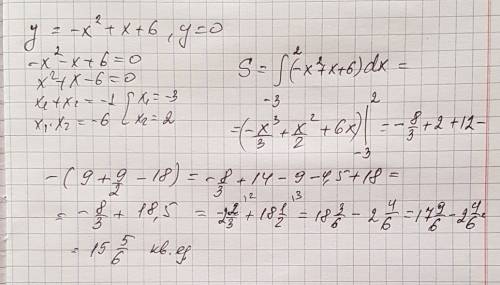 y = -x² + x + 6, y = 0
-x² - x + 6 = 0
x² + x - 6 = 0
x₁ + x₂ = -1 { x₁ = -3
x₁ · x₂ = -6 { x₂ = 2
S = ∫₋₃² (-x² + x + 6) dx =
= (-x³/3 + x²/2 + 6x) |₋₃² = -8/3 + 2 + 12 -
- (9 + 9/2 - 18) = -8/3 + 14 - 9 - 4,5 + 18 =
= -8/3 + 18,5 = -2 2/3 + 18 1/2 = 18 3/6 - 2 4/6 = 17 9/6 - 2 4/6 =
= 15 5/6 кв. ед